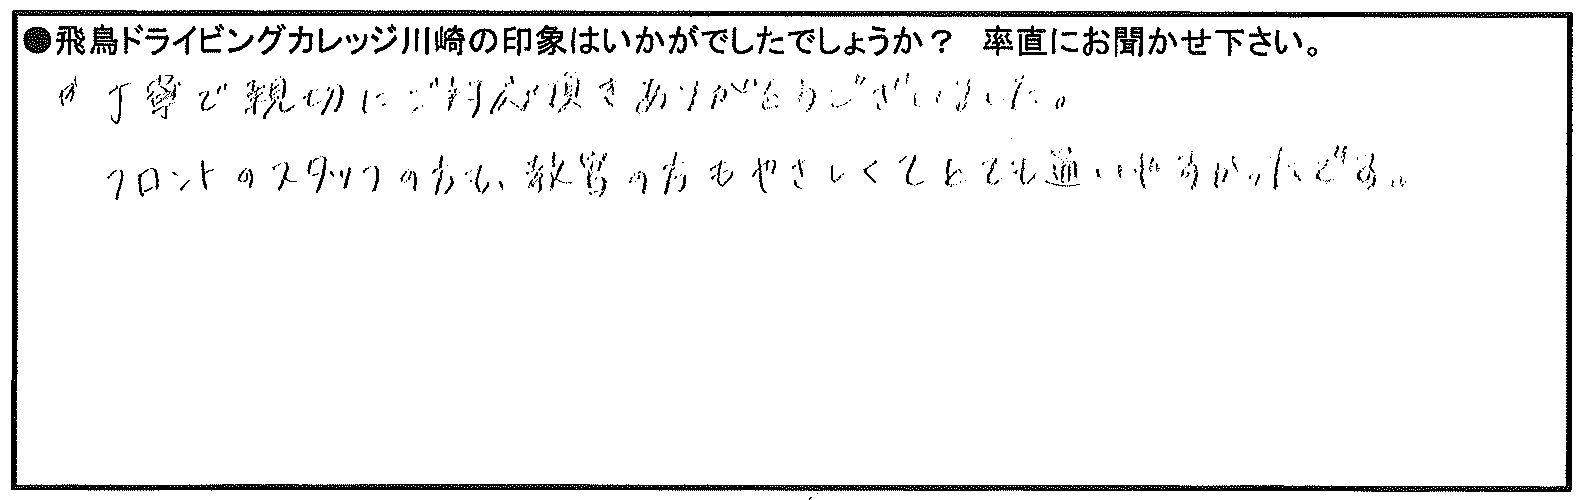 ●飛鳥ドライビングカレッジ川崎の印象はいかがでしたでしょうか？　率直にお聞かせ下さい。
丁寧で親切にご対応頂きありがとうございました。
フロントのスタッフの方も、教習の方もやさしくてとても通いやすかったです。